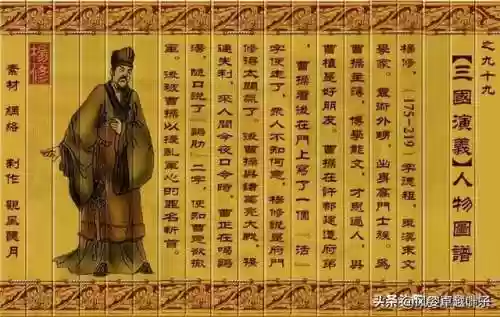 之九十九
【三國演義】人物圖譜
楊修，（175-219）字德祖，東漢末文
學家。袁術外甥，出身高門士族。為
曹操主簿，博學能文，才思過人，與
曹植是好朋友。曹操在許都建造府第
，曹操看後在門上寫了一個『活』
字便走了，眾人不知何意，楊修說是府門
修得太闊氣了。後曹操與諸葛亮大戰，接
連失利，眾人問今夜口令時，曹正在喝雞
湯，隨口說了『雞肋』二字，便知曹意欲撤
軍。後被曹操以擾亂軍心的罪名斬首。
楊修
素材 網絡 制作 觀風隨月
头条 卓越